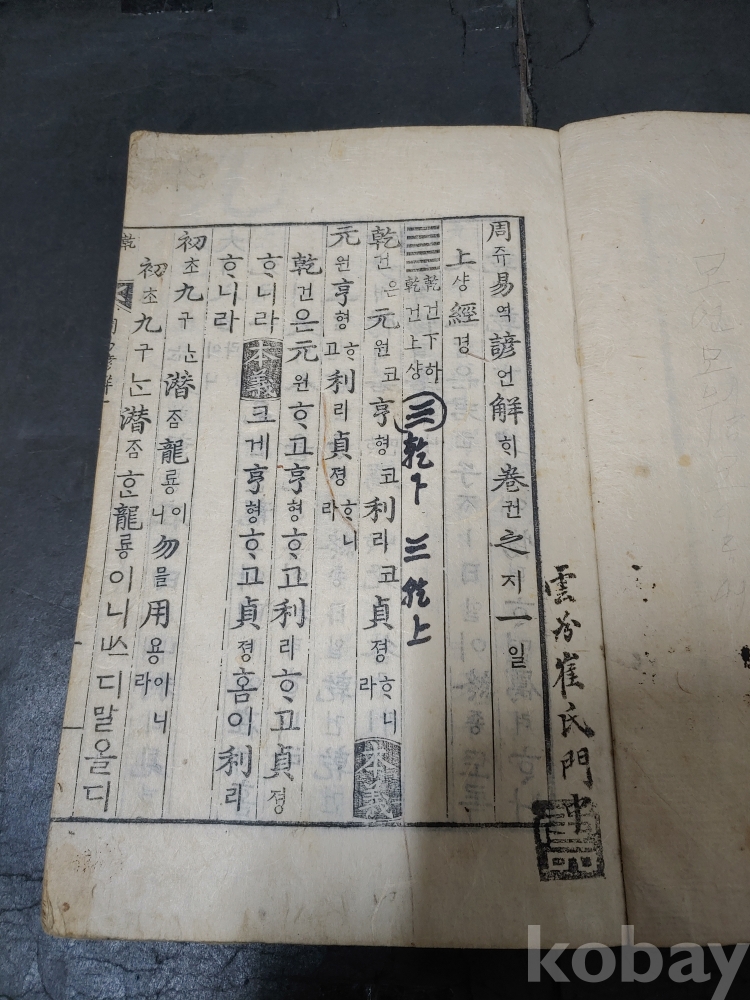 雲 崔氏門中
周쥬易역諺언解ᄒᆡ卷권之지一일
上샹經경
䷀ 乾건下하 乾건上샹 ☰乾下 ☰乾上
乾건은元원코亨형코利리코貞졍ᄒᆞ니라 本義
元원亨형ᄒᆞ고利리貞졍ᄒᆞ니라
乾건은元원ᄒᆞ고亨형ᄒᆞ고利리ᄒᆞ고貞졍
ᄒᆞ니라 本義 크게亨형ᄒᆞ고貞졍홈이利리
ᄒᆞ니라
初초九구ᄂᆞᆫ潛ᄌᆞᆷ龍룡이니勿믈用용이니라
初초九구ᄂᆞᆫ潛ᄌᆞᆷᄒᆞᆫ龍룡이니ᄡᅳ디말올디
乾
kobay